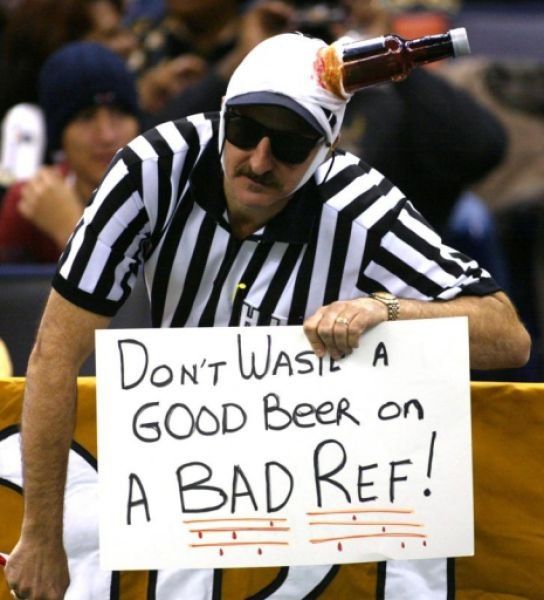 DON'T WASTE A
GOOD BEER ON
A BAD REF!